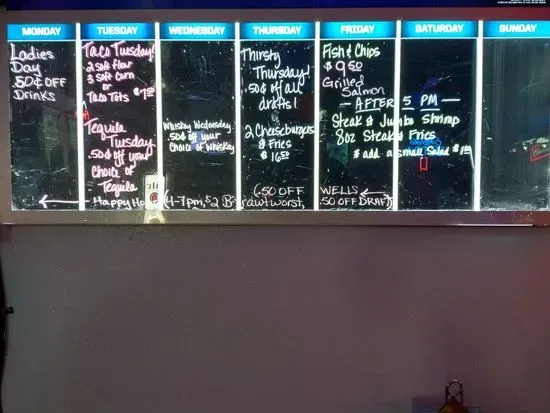 MONDAY
TUESDAY
WEDNESDAY
THURSDAY
FRIDAY
SATURDAY
SUNDAY
Ladies
Day
50¢ OFF
Drinks
Taco Tuesday!
2 soft flour
3 soft corn
or
Taco Tots $7.50
Tequila
Tuesday
.50¢ off your
choice of
Tequila
Whiskey Wednesday
.50¢ off your
Choice of Whiskey
Thirsty
Thursday!
50¢ off all
drafts!
2 Cheeseburgers
& Fries
$16.50
Fish & Chips
$9.50
Grilled
Salmon
—AFTER 5 PM—
Steak & Jumbo Shrimp
8oz Steak & Fries
* add a small Salad
Happy Ho
(4-7pm, $2
.50 OFF
WELLS
.50 OFF DRAF